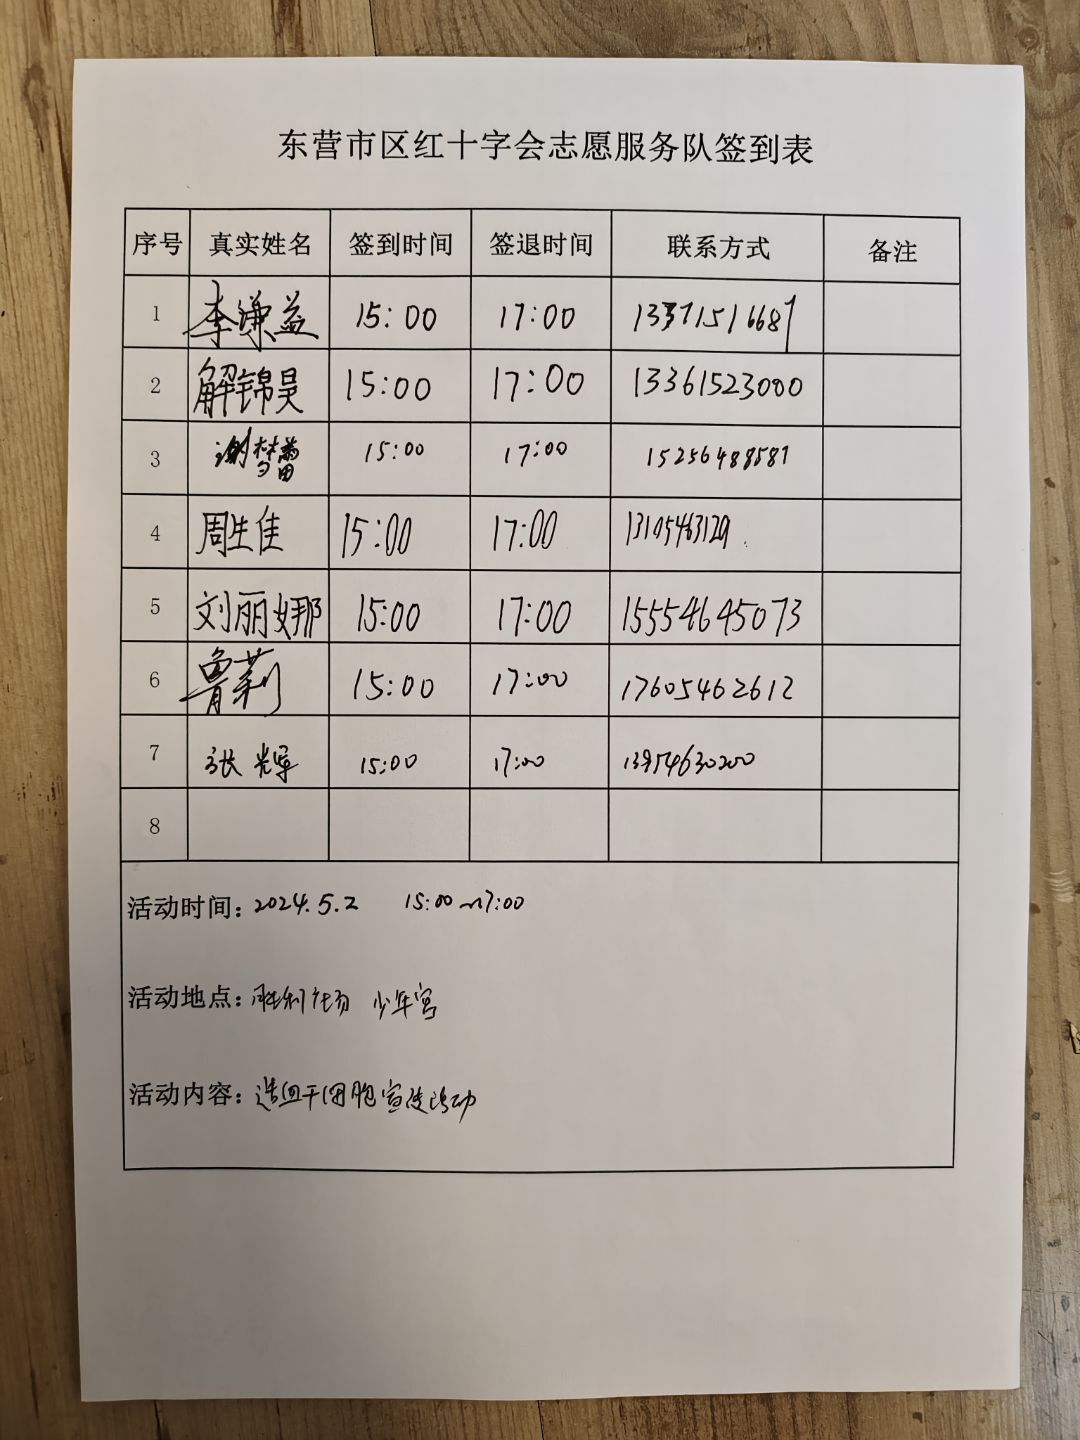 东营市区红十字会志愿服务队签到表
序号 真实姓名 签到时间 签退时间 联系方式 备注
1 李谦益 15:00 17:00
2 解锦昊 15:00 17:00 13361523000
3 谢梦蕾 15:00 17:00 15256488587
4 周生佳 15:00 17:00
5 刘丽娜 15:00 17:00 15554645073
6 鲁莉 15:00 17:00 17605462612
7 张辉 15:00 17:00 13954630200
8
活动时间: 2024.5.2 15:00~17:00
活动地点: 胜利广场 少年宫
活动内容: 造血干细胞宣传活动